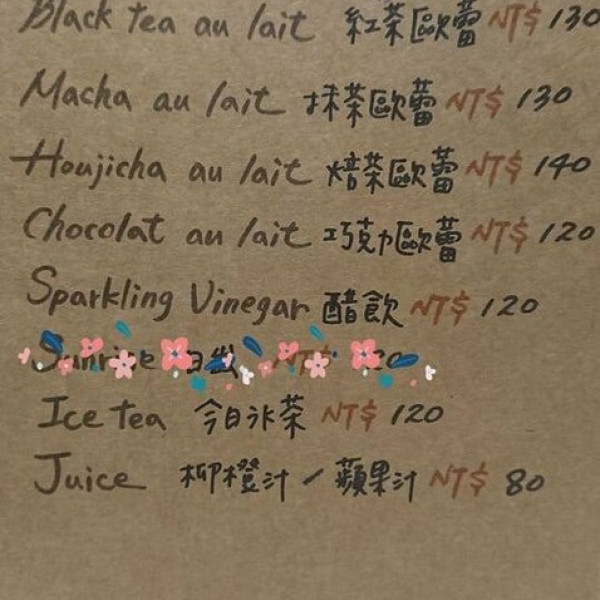 Black tea au lait 紅茶歐蕾 NT$ 130
Macha au lait 抹茶歐蕾 NT$ 130
Houjicha au lait 焙茶歐蕾 NT$ 140
Chocolat au lait 巧克力歐蕾 NT$ 120
Sparkling Vinegar 醋飲 NT$ 120
Sunrise 日出
Ice tea 今日冰茶 NT$ 120
Juice 柳橙汁／蘋果汁 NT$ 80